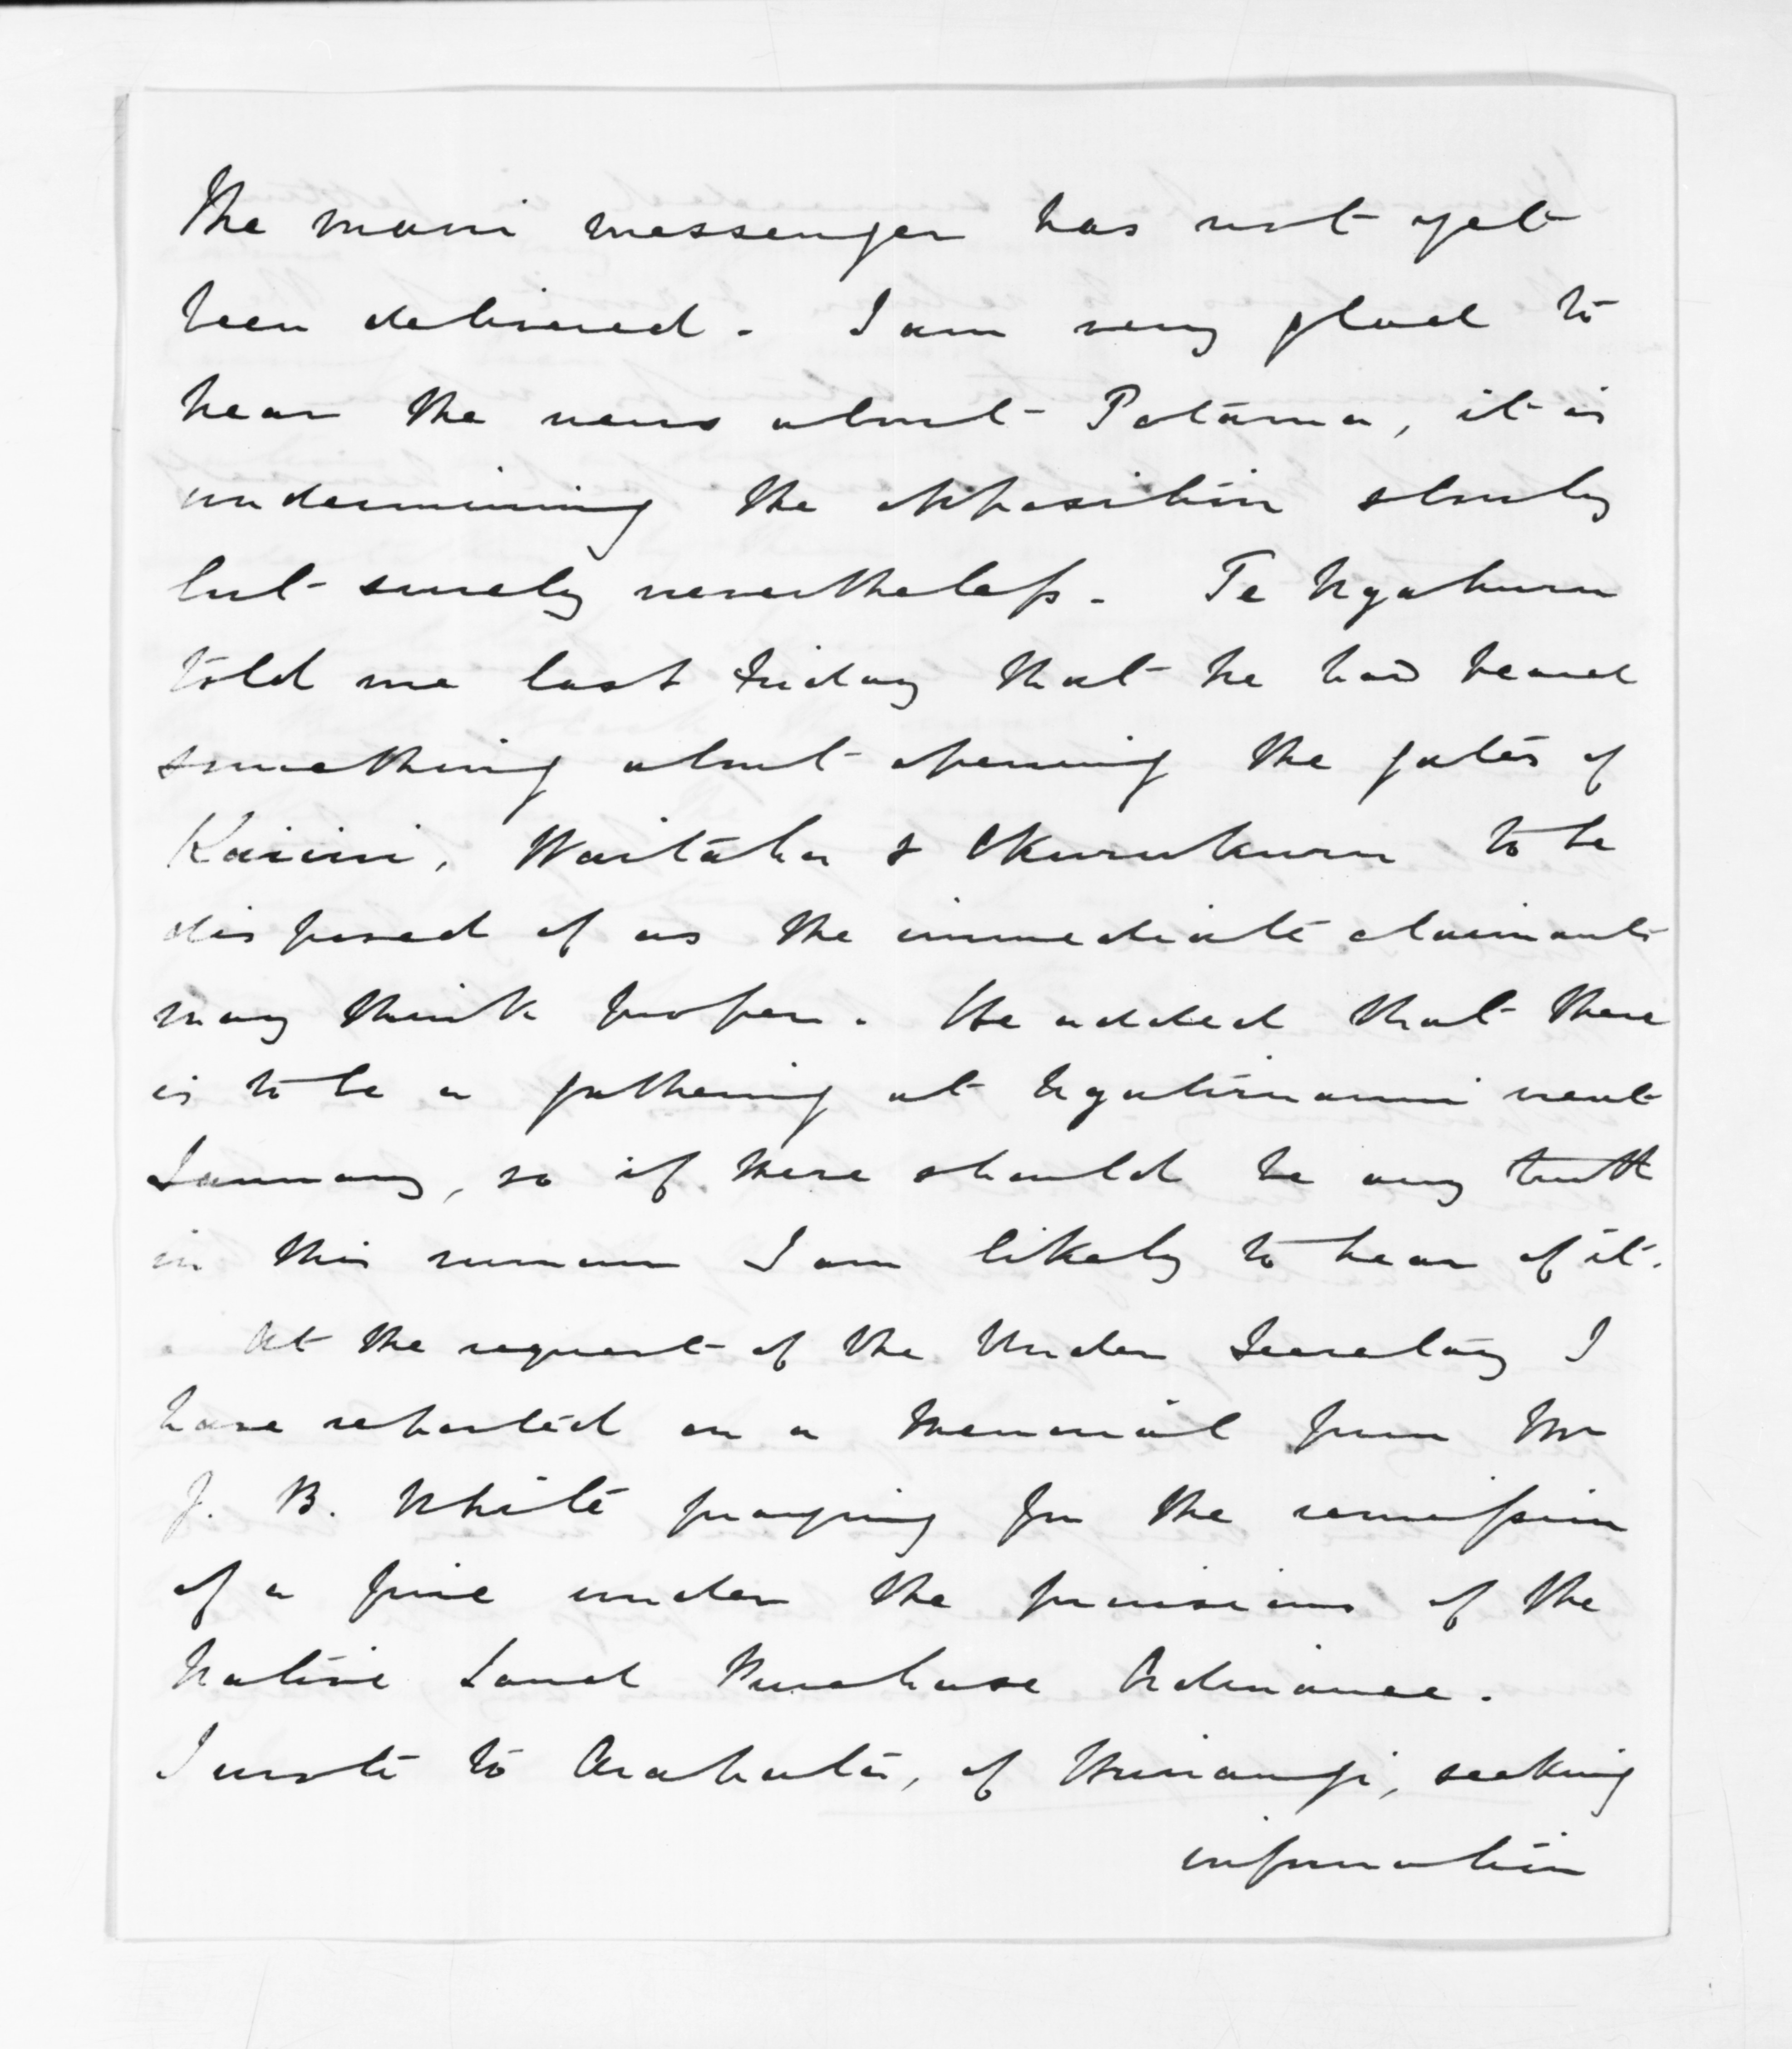 The maori messenger has not yet
been delivered. I am very glad to
hear the news about Patama, it is
undermining the opposition slowly
but surely nevertheless. Te Ngahuru
told me last Friday that he had heard
something about opening the gates of
Kaiiwi, Waitaha & Okurukuru to be
disposed of as the immediate claimants
may think proper. He added that there
is to be a gathering at Ngatiruanui next
January, so if there should be any truth
in this rumour I am likely to hear of it.
At the request of the Under Secretary I
have reported on a Memorial from Mr
J. B. White praying for the remission
of a fine under the provisions of the
Native Land Purchase Ordinance.
I wrote to of seeking
information